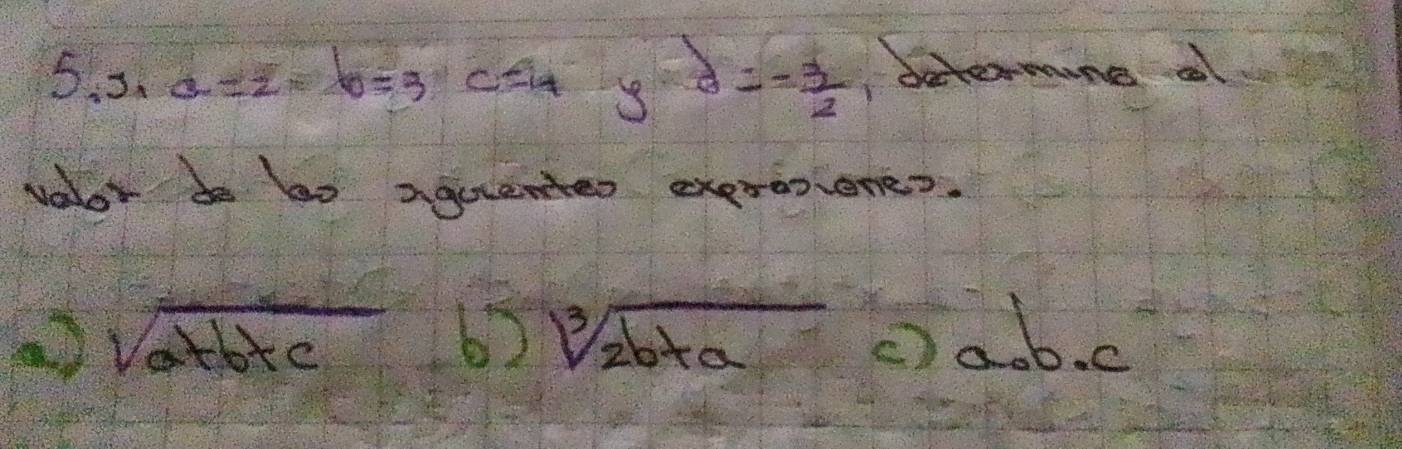 5. Si a=2 b=3 c=4 y d=-3/2, determine el
valor de las siguientes expresiones.
a) √a+b+c b) ∛2b+a c) a.b.c